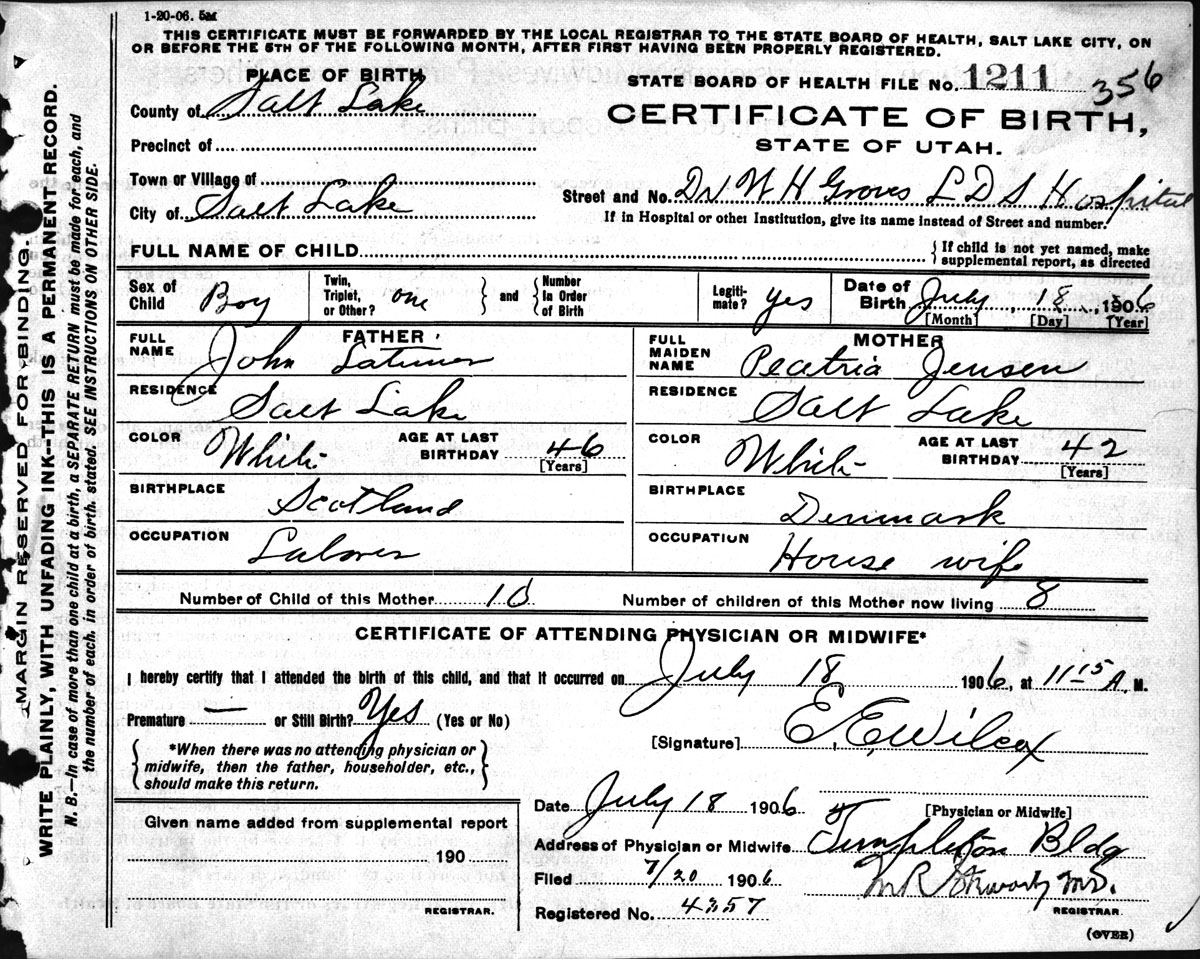 1-20-06. 5M
THIS CERTIFICATE MUST BE FORWARDED BY THE LOCAL REGISTRAR TO THE STATE BOARD OF HEALTH, SALT LAKE CITY, ON
OR BEFORE THE 5TH OF THE FOLLOWING MONTH, AFTER FIRST HAVING BEEN PROPERLY REGISTERED.
PLACE OF BIRTH
STATE BOARD OF HEALTH FILE NO. 1211 356
County of Salt Lake
CERTIFICATE OF BIRTH,
STATE OF UTAH.
Precinct of
Town or Village of
Street and No. Dr W H Groves L D S Hospital
City of Salt Lake
If in Hospital or other Institution, give its name instead of Street and number.
FULL NAME OF CHILD
{ If child is not yet named, make
supplemental report, as directed
Sex of Child Boy
Twin, Triplet, or Other? one } and { Number in Order of Birth
Legiti-mate? yes
Date of Birth July 18, 1906
[Month] [Day] [Year]
FATHER
FULL NAME John Latimer
RESIDENCE Salt Lake
COLOR White AGE AT LAST BIRTHDAY 46
[Years]
BIRTHPLACE Scotland
OCCUPATION Labores
MOTHER
FULL MAIDEN NAME Peatria Jensen
RESIDENCE Salt Lake
COLOR White AGE AT LAST BIRTHDAY 42
[Years]
BIRTHPLACE Denmark
OCCUPATION House wife
Number of Child of this Mother 10 Number of children of this Mother now living 8
CERTIFICATE OF ATTENDING PHYSICIAN OR MIDWIFE*
I hereby certify that I attended the birth of this child, and that it occurred on July 18 1906, at 11 15 A. M.
Premature — or Still Birth? Yes (Yes or No)
[Signature] E. E. Wilcox
{ *When there was no attending physician or
midwife, then the father, householder, etc.,
should make this return. }
Date July 18 1906
[Physician or Midwife]
Given name added from supplemental report
190
REGISTRAR.
Address of Physician or Midwife Templeton Bldg
Filed 7/20 1906 M R Stewart M.D.
Registered No. 4357 REGISTRAR.
(OVER)
MARGIN RESERVED FOR BINDING.
WRITE PLAINLY, WITH UNFADING INK--THIS IS A PERMANENT RECORD.
N. B.—In case of more than one child at a birth, a SEPARATE RETURN must be made for each, and
the number of each, in order of birth, stated. SEE INSTRUCTIONS ON OTHER SIDE.